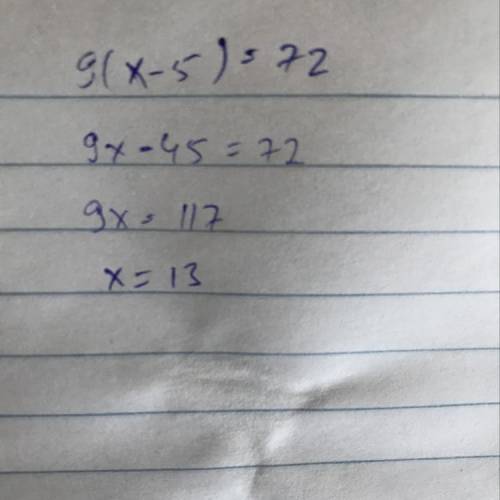 9(x-5) = 72
9x - 45 = 72
9x = 117
x = 13